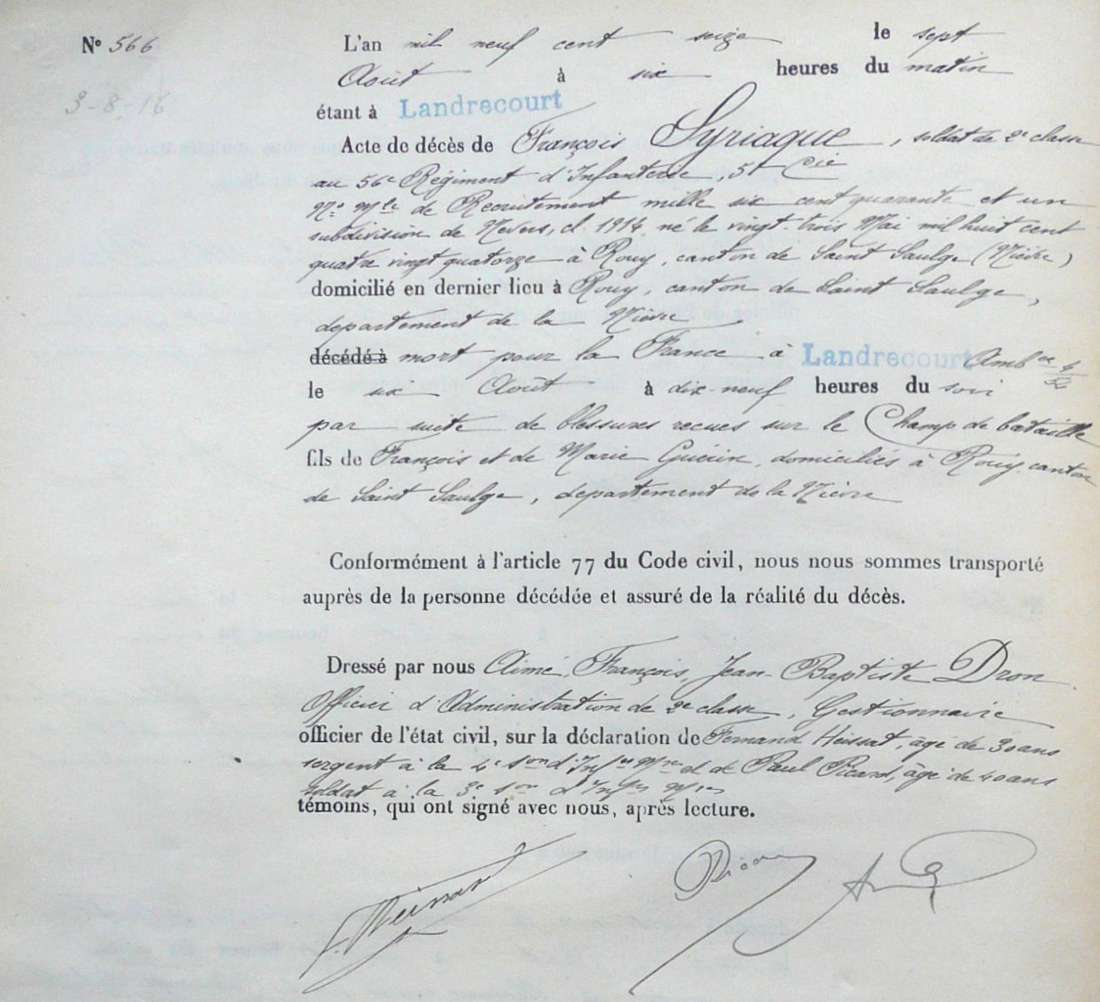 N° 566
L'an mil neuf cent seize le sept
Août à six heures du matin
3-8-16
étant à Landrecourt
Acte de décès de François Syriaque, soldat de 2e classe
au 56e Régiment d'Infanterie, 5t Cie
N° Mle de Recrutement mille six cent quarante et un
subdivision de Nevers, cl. 1914, né le vingt-trois Mai mil huit cent
quatre vingt quatorze à Rouy, canton de Saint Saulge (Nièvre)
domicilié en dernier lieu à Rouy, canton de Saint Saulge,
departement de la Nièvre
décédé à mort pour la France à Landrecourt Ambce
le six Août à dix-neuf heures du soir
par suite de blessures recues sur le Champ de bataille
fils de François et de Marie Guérin, domiciliés à Rouy, canton
de Saint Saulge, departement de la Nièvre
Conformément à l'article 77 du Code civil, nous nous sommes transporté
auprès de la personne décédée et assuré de la réalité du décès.
Dressé par nous Aimé, François, Jean-Baptiste Dron
Officier d'Administration de 2e classe, Gestionnaire
officier de l'état civil, sur la déclaration de Fernand Heissat, âgé de 30 ans
sergent à la 4e son d'Infers Mres et de Paul Picard, âgé de 40 ans
soldat à la 3e son d'Infers Mres
témoins, qui ont signé avec nous, après lecture.